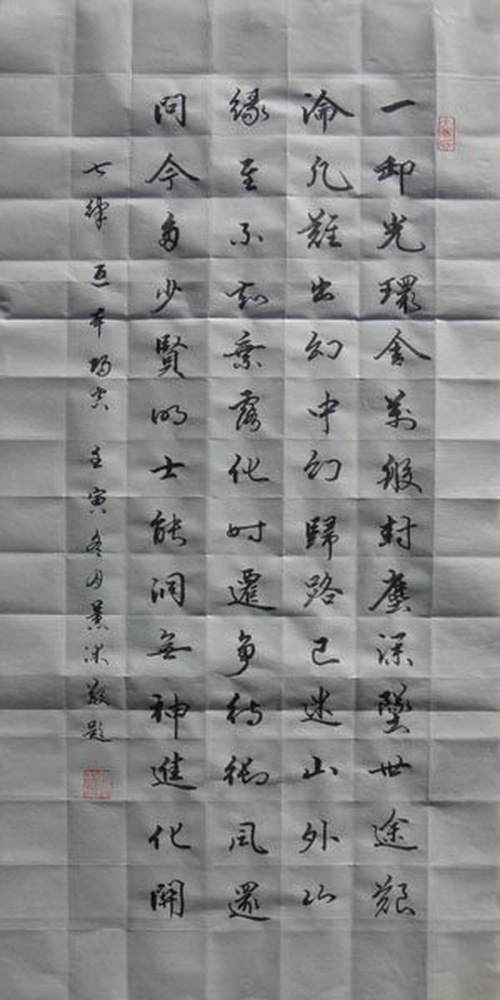 一卸光環舍萬般封塵深墜世途艱
淪凡難出幻中幻歸路已迷山外山
緣至不知承露化時遷爭待獨風還
問今多少賢明士能洞無神進化關
七律 壬寅冬月 敬題